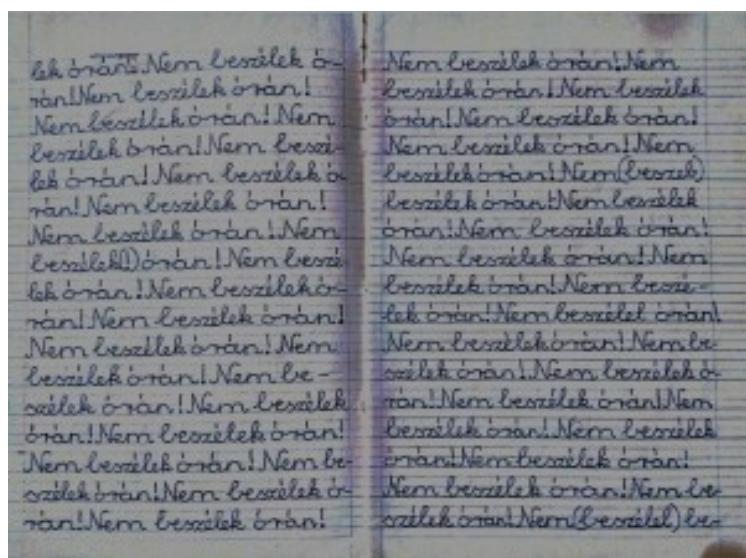 lek órán! Nem beszélek ó-
rán! Nem beszélek órán!
Nem beszélek órán! Nem
beszélek órán! Nem beszé-
lek órán! Nem beszélek ó-
rán! Nem beszélek órán!
Nem beszélek órán! Nem
beszélek(!) órán! Nem beszé
lek órán! Nem beszélek ó-
rán! Nem beszélek órán!
Nem beszélek órán! Nem
beszélek órán! Nem be-
szélek órán! Nem beszélek
órán! Nem beszélek órán!
Nem beszélek órán! Nem be-
szélek órán! Nem beszélek ó-
rán! Nem beszélek órán!
Nem beszélek órán! Nem
beszélek órán! Nem beszélek
órán! Nem beszélek órán!
Nem beszélek órán! Nem
beszélek órán! Nem (beszek)
beszélek órán! Nem beszélek
órán! Nem beszélek órán!
Nem beszélek órán! Nem
beszélek órán! Nem beszé-
lek órán! Nem beszélel órán!
Nem beszélek órán! Nem be-
szélek órán! Nem beszélek ó-
rán! Nem beszélek órán! Nem
beszélek órán! Nem beszélek
órán! Nem beszélek órán!
Nem beszélek órán! Nem be-
szélek órán! Nem (beszélel) be-